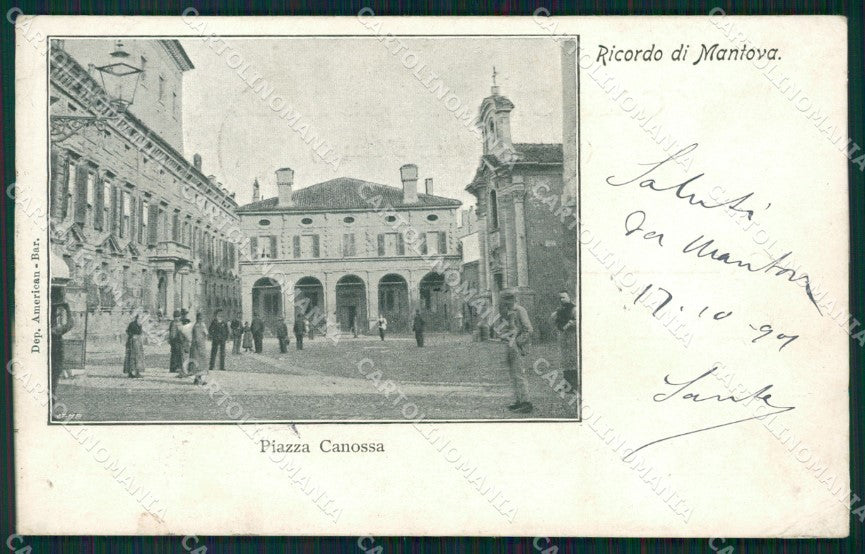 Ricordo di Mantova.
Saluti
da Mantova
17·10-901
Sante
Dep. American-Bar.
Piazza Canossa
CARTOLINOMANIA